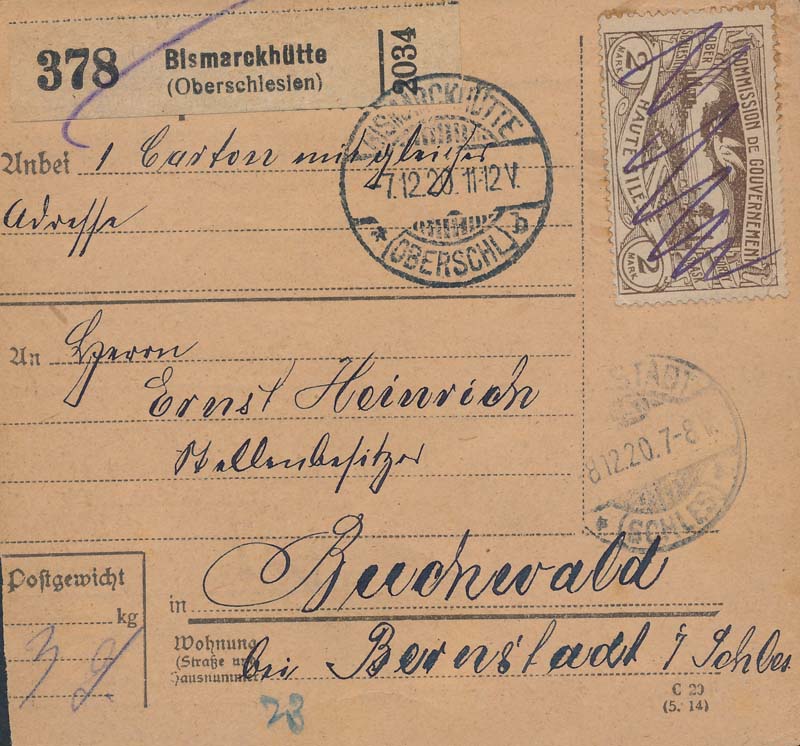 378 Bismarckhütte
(Oberschlesien)
2034
Anbei 1 Carton mit gleicher
Adresse
BISMARCKHÜTTE
7.12.20. 11-12 V.
* (OBERSCHL.) b
COMMISSION DE GOUVERNEMENT
HAUTE SILÉSIE
OBER
2 MARK
2 MARK
An Herrn
Ernst Heinrich
Stellenbesitzer
STADT
8.12.20. 7-8 V.
* (SCHLES)
Postgewicht
kg
3
in Buchwald
Wohnung
(Straße und
Hausnummer)
bei Bernstadt i/Schles
28
C 29
(5. 14)